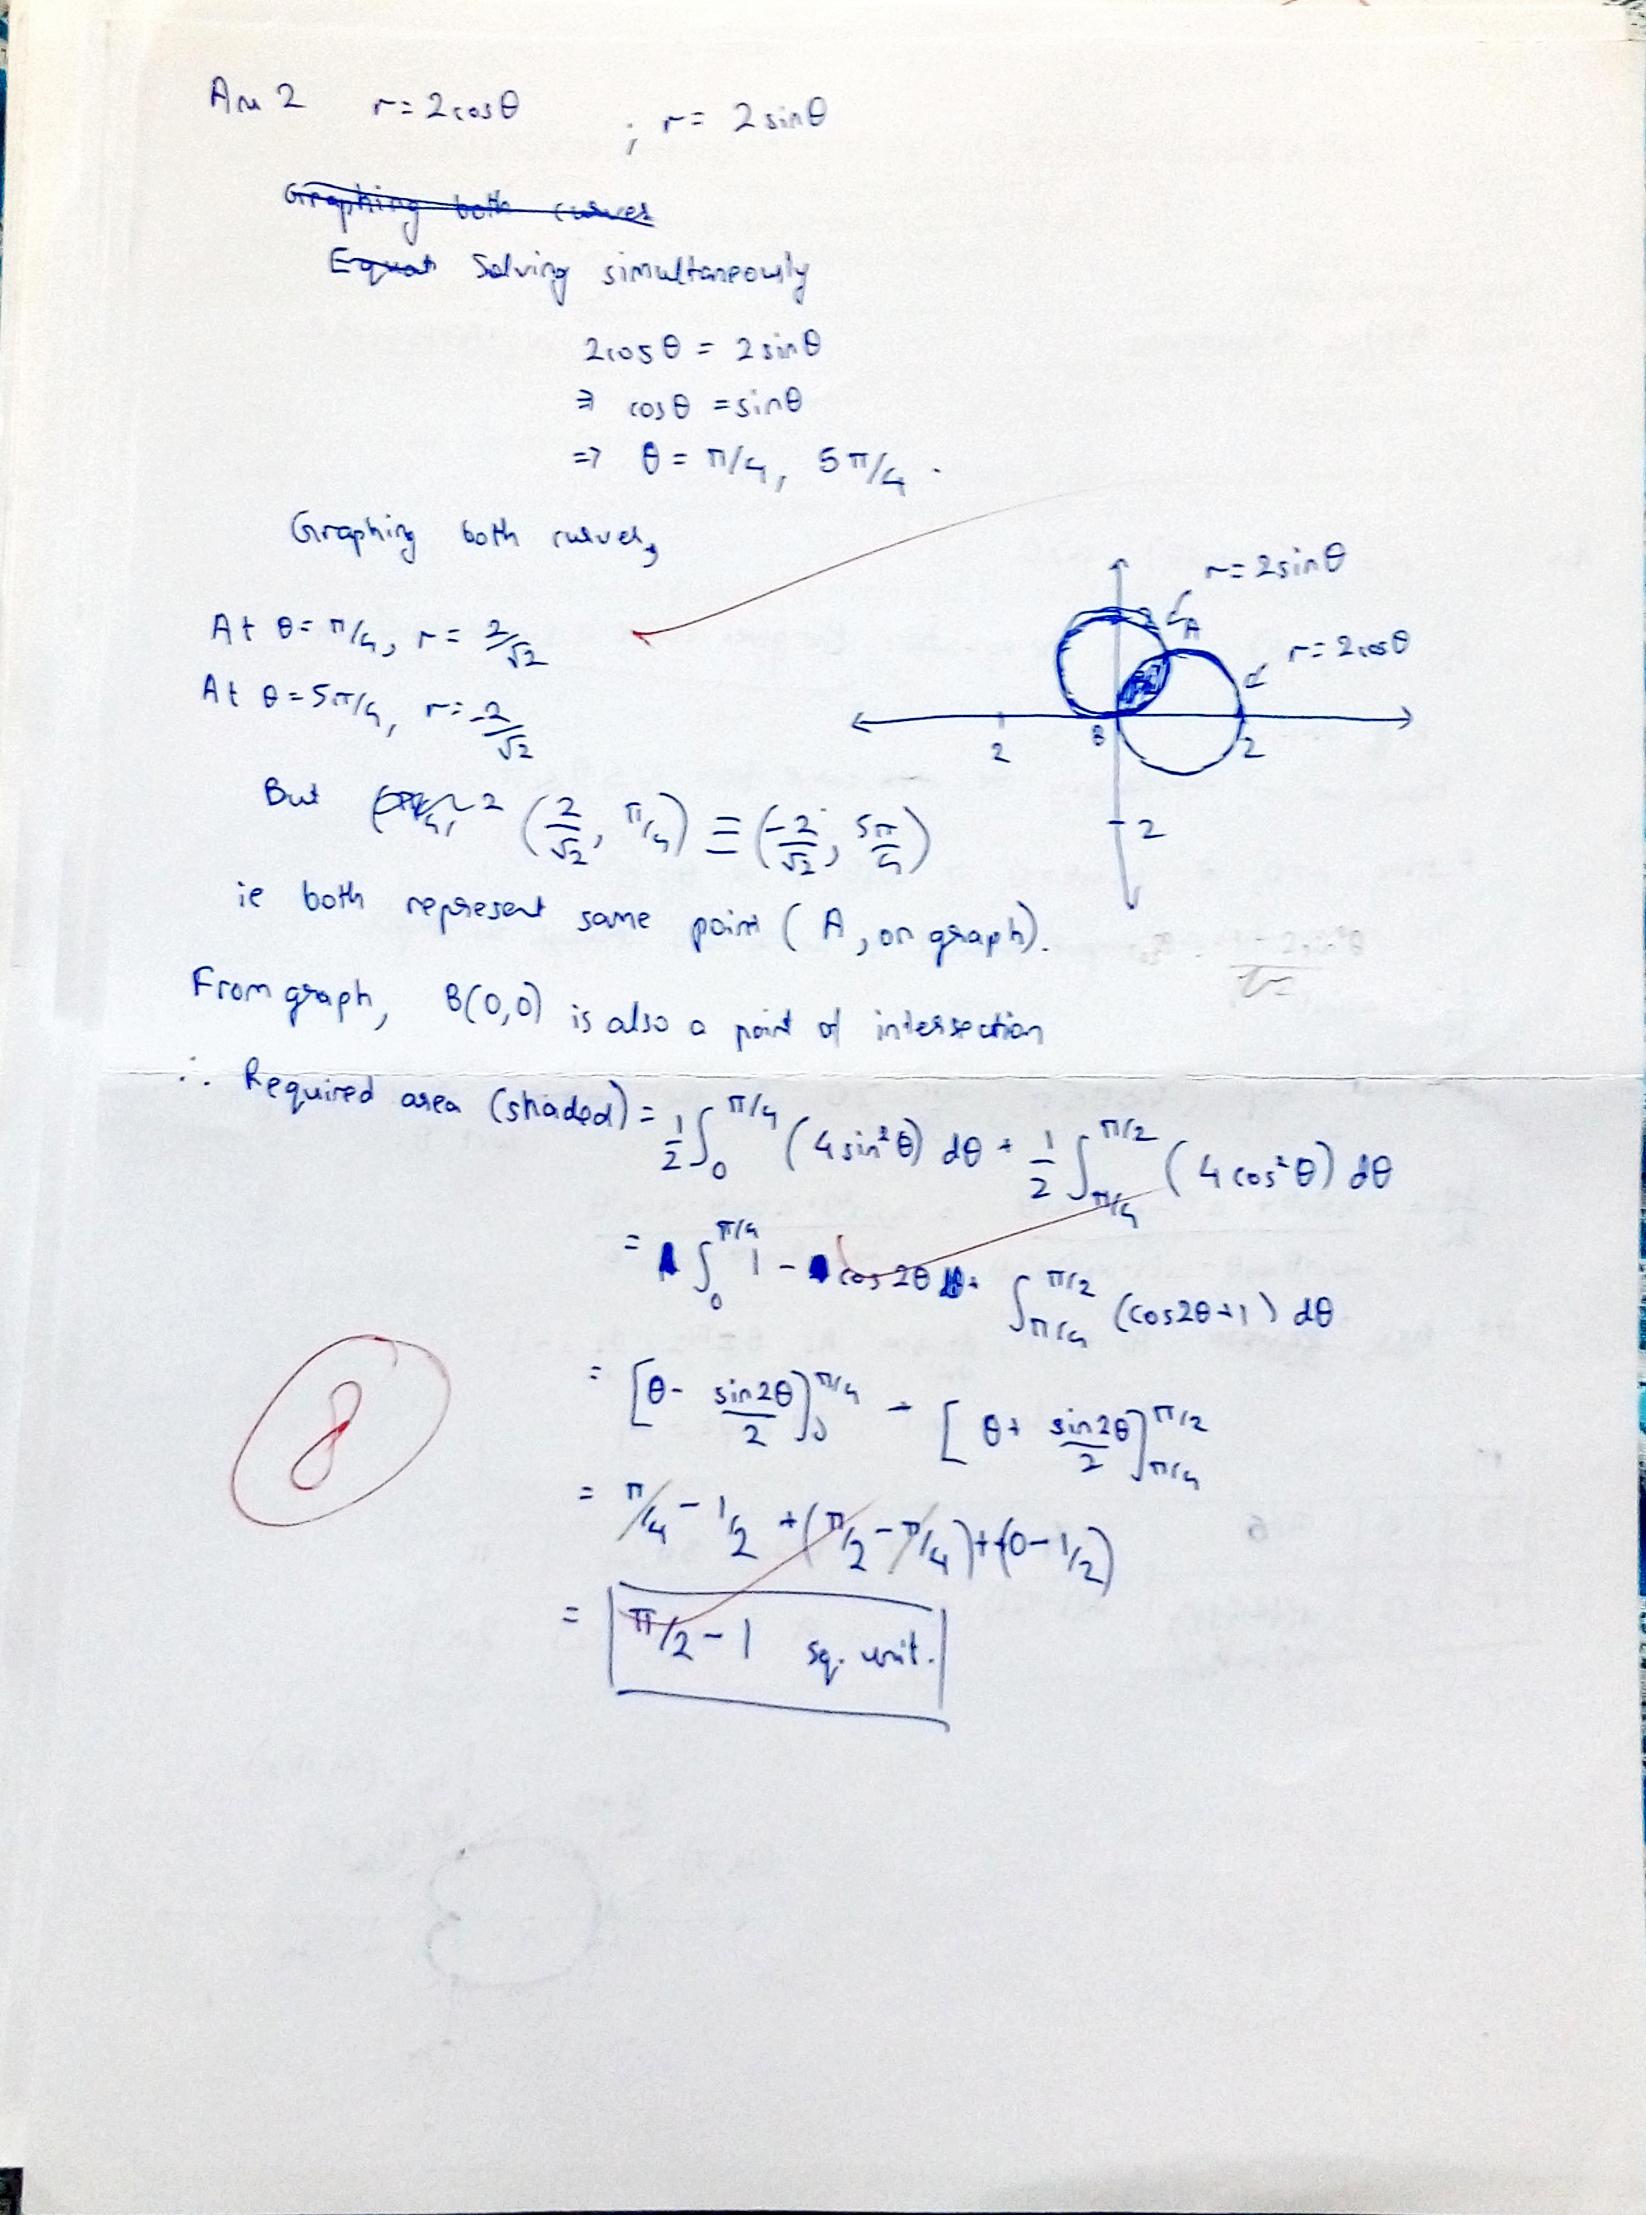 Ans 2 r = 2cosθ ; r = 2sinθ
Graphing both curves
Equat Solving simultaneously
2cosθ = 2sinθ
⇒ cosθ = sinθ
⇒ θ = π/4, 5π/4 .
Graphing both curves,
r = 2sinθ
A
r = 2cosθ
B
2
2
2
At θ = π/4, r = 2/√2
At θ = 5π/4, r = -2/√2
But (2/√2, π/4) ≡ (-2/√2, 5π/4)
ie both represent same point (A, on graph).
From graph, B(0,0) is also a point of intersection
∴ Required area (shaded) = 1/2 ∫₀^π/4 (4sin²θ) dθ + 1/2 ∫π/4^π/2 (4cos²θ) dθ
= ∫₀^π/4 1 - cos2θ dθ + ∫π/4^π/2 (cos2θ+1) dθ
= [θ - sin2θ/2]₀^π/4 + [θ + sin2θ/2]π/4^π/2
= π/4 - 1/2 + (π/2 - π/4) + (0 - 1/2)
= π/2 - 1 sq. unit.
8